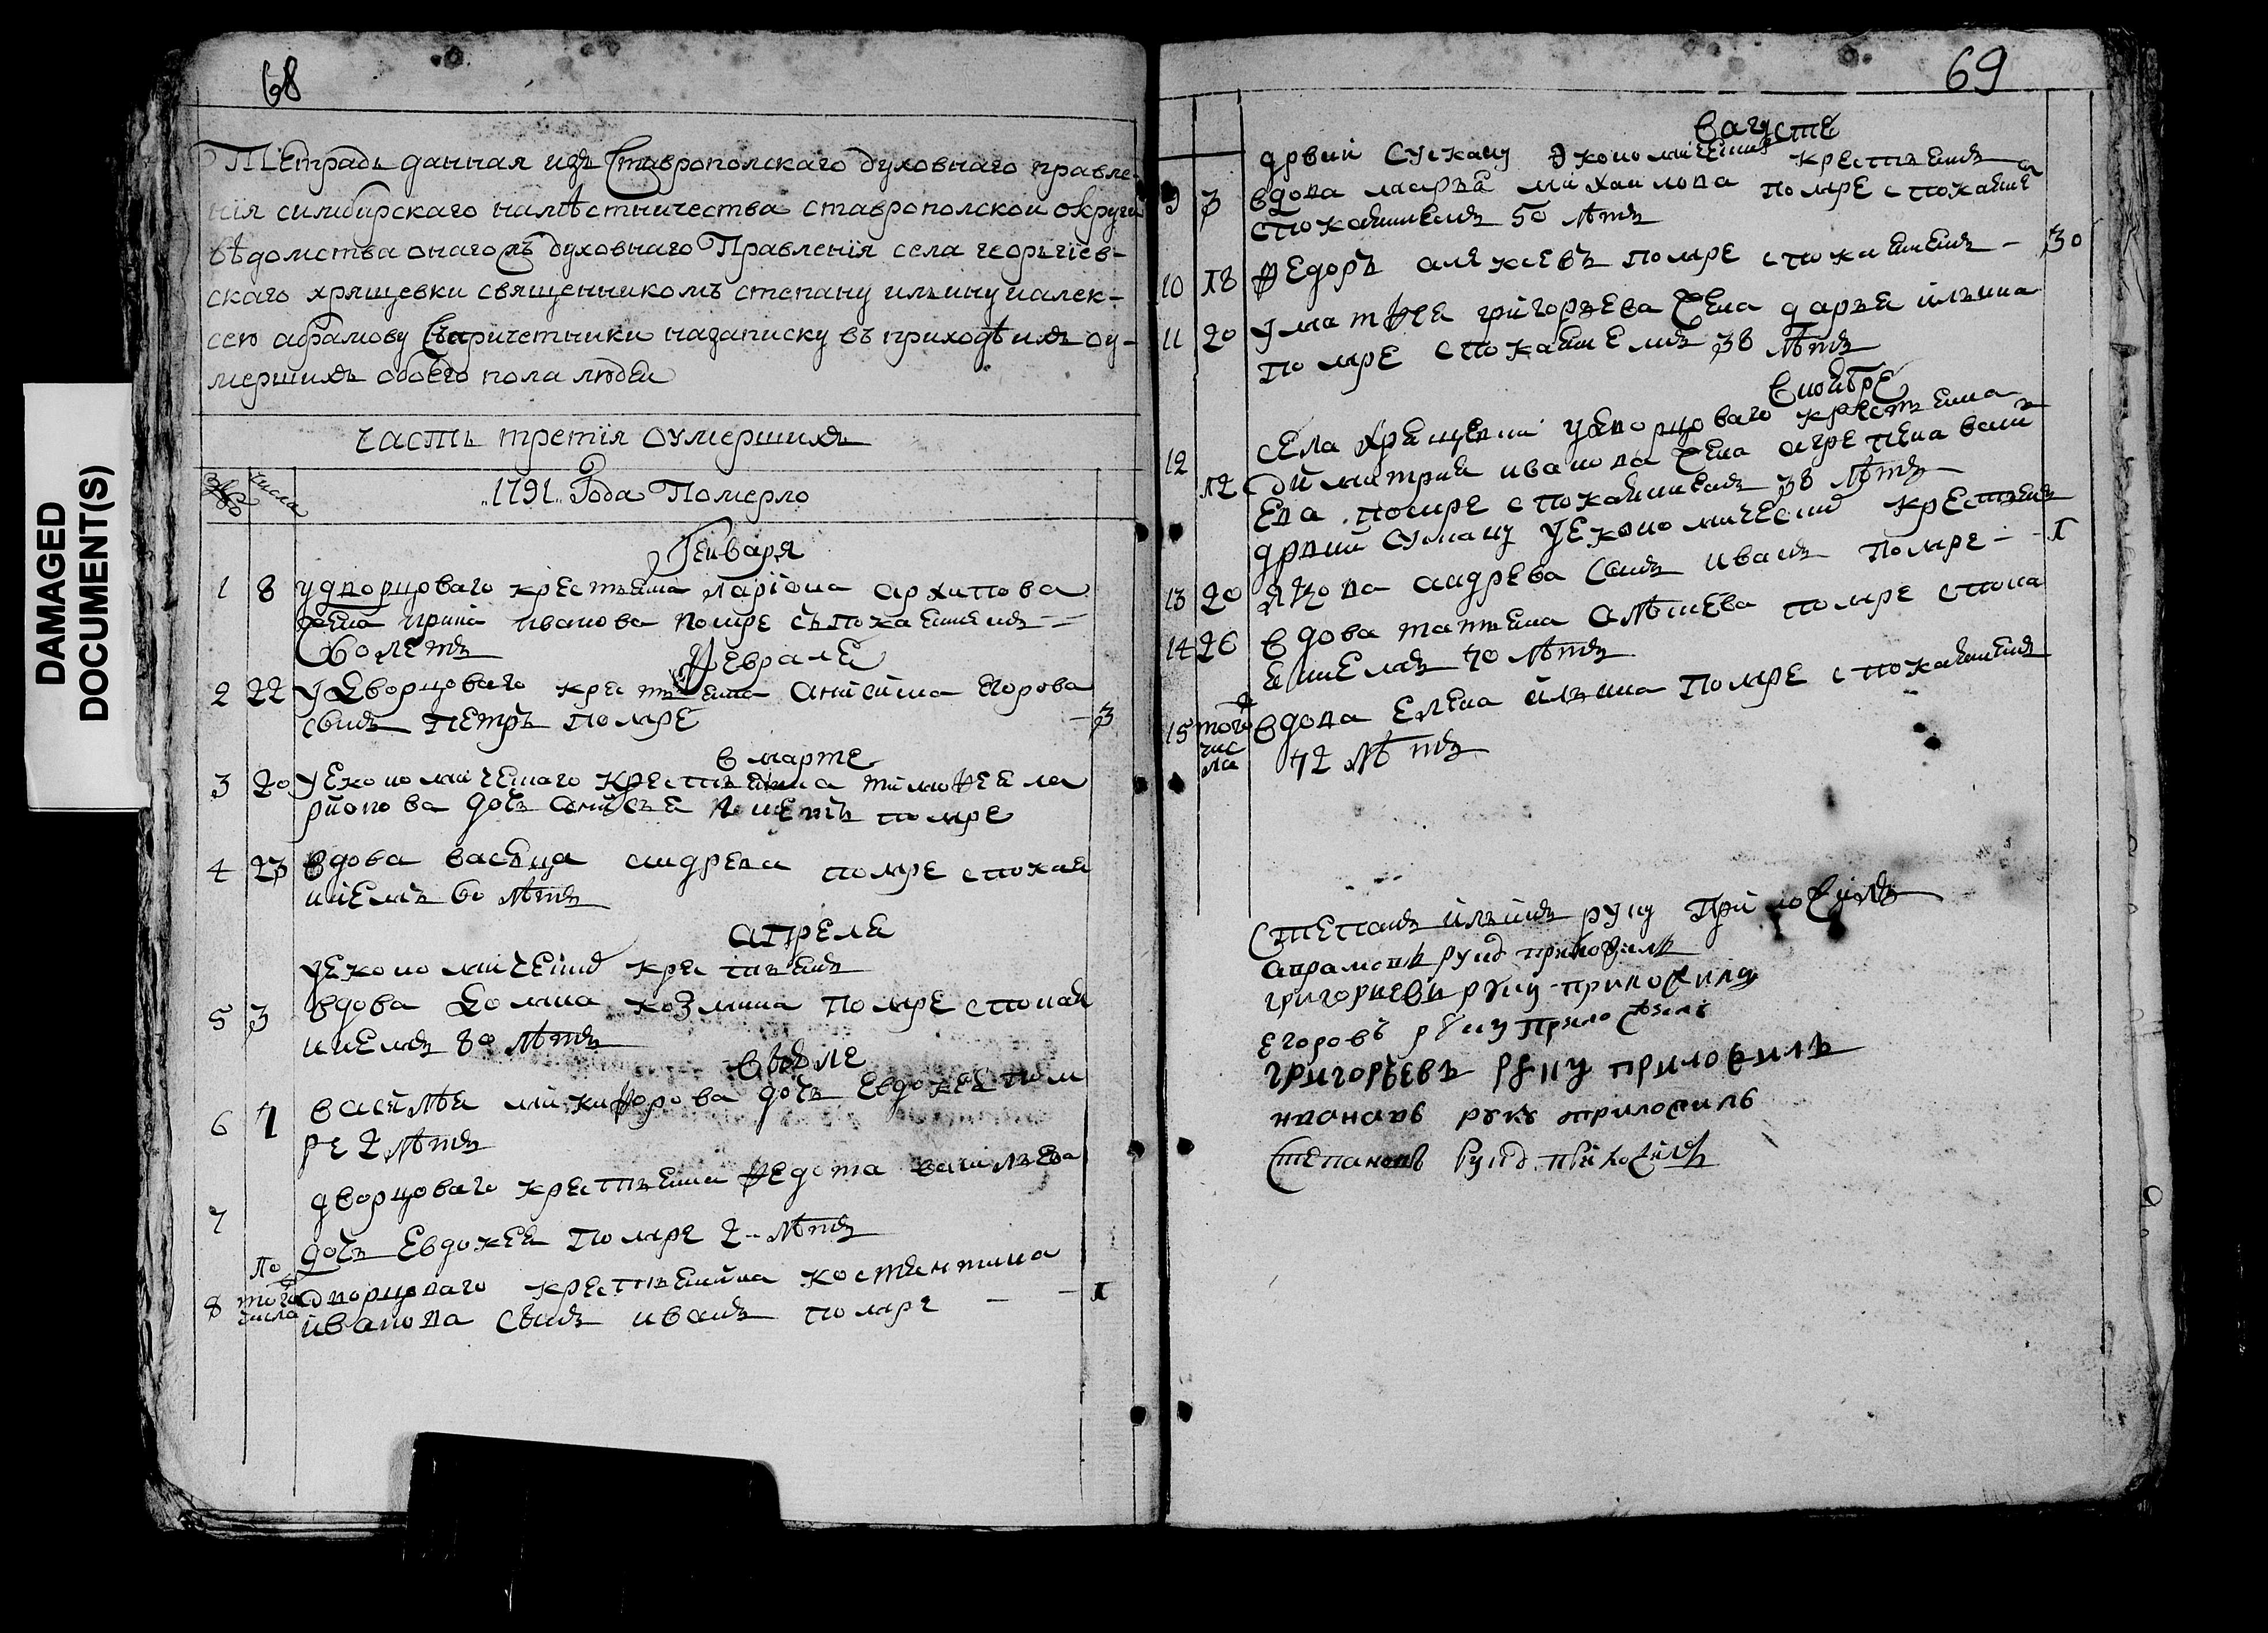 DAMAGED
DOCUMENT(S)
68
Тетрадь данная изъ Ставрополскаго духовнаго правле-
нія симбирскаго намѣстничества ставрополской округи
вѣдомства онагожъ духовнаго Правленія села георьгіев-
скаго хрящевки священникомъ степану ильину иалек-
сею абрамову съпричетники назаписку въ приходѣ ихъ оу-
мершихъ обоего пола людеи
часть третія оумершихъ
№ числа „1791„ Года Померло
Генваря
1 8 удворцоваго крестьянина ларіона архипова
жена ирина иванова помре съпокаяниемъ
60 летъ
Февраля
2 22 у дворцоваго крестьянина анисима егорова
сынъ петръ помре 3
в марте
3 20 уекономическаго крестьянина тимофея ла
рионова дочь помре
4 23 вдова андрева помре с покая
ниемъ 60 лѣтъ
апреля
уекономическихъ крестьянъ
5 3 вдова домна козмина помре с покая
ниемъ 80 лѣтъ
в июле
6 7 василья никифорова дочь евдокея пом
ре 2 лѣтъ
7 дворцоваго крестьянина федота васильева
дочь евдокея помре 2 лѣтъ
8 того числа дворцоваго крестьянина костентина
иванова сынъ иванъ помре 1
69
в августе
дрвни сускану экономическихъ крестьянъ
9 3 вдова марья михаилова помре с покаяние
с покаяниемъ 50 лѣтъ
10 18 федоръ алекеевъ помре с покаяниемъ 30
11 20 у матфея григорьева жена дарья ильина
помре с покаяниемъ 38 лѣтъ
в ноябре
села хрящевки удворцоваго крестьянина
12 12 димитрия иванова жена агрепена васи
ева помре с покаяниемъ 38 лѣтъ
дрвни сускану уекономическихъ крестьянъ
13 20 якова андрева сынъ иванъ помре 1
14 26 вдова татьяна помре с пока
яниемъ 70 лѣтъ
15 того числа вдова елена ильина помре с покаяниемъ
72 лѣтъ
Степанъ ильинъ руку приложилъ
апрамовъ руку приложилъ
григориевъ руку приложилъ
егоровъ руку приложилъ
григорьевъ руку приложилъ
ивановъ руку приложилъ
степановъ руку приложилъ